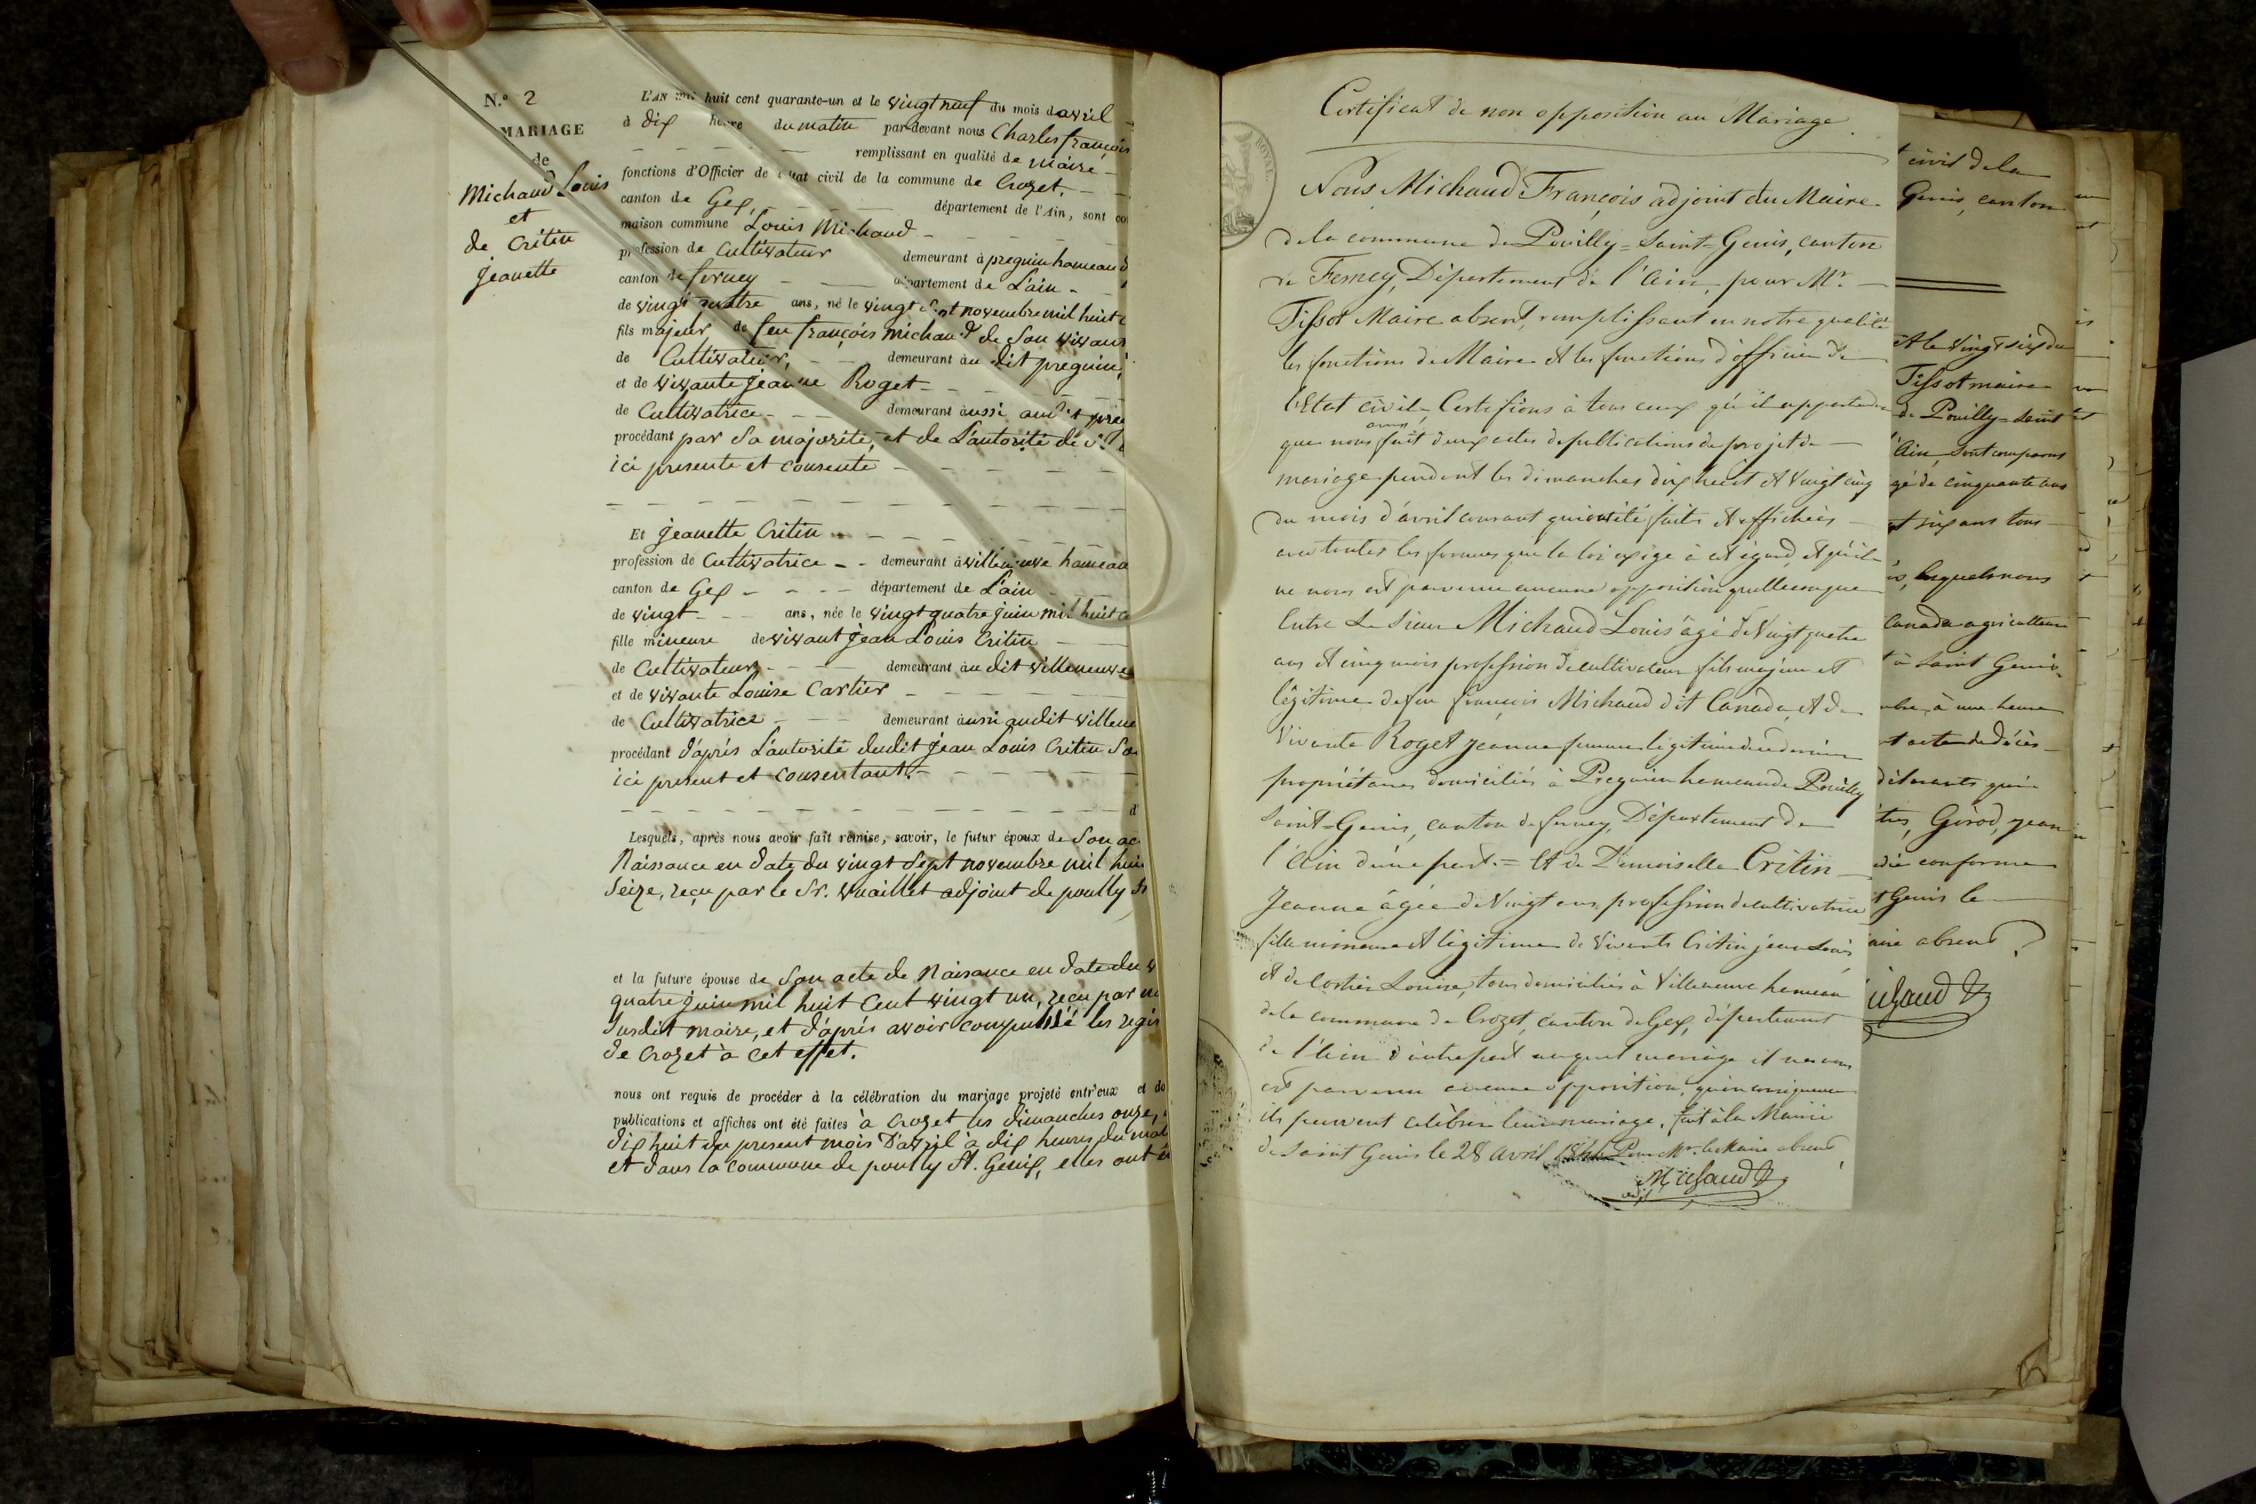 N.º 2
MARIAGE
de
Michaud Louis
et
de Critin
Jeanette
L'AN mil huit cent quarante-un et le vingt neuf du mois d'avril
à dix heure du matin par-devant nous Charles françois
remplissant en qualité de maire
fonctions d'Officier de l'état civil de la commune de Crozet.
canton de Gex, département de l'Ain, sont co
maison commune Louis Michaud
profession de Cultivateur demeurant à preguin hameau d
canton de ferney département de L'ain
de vingt quatre ans, né le vingt sept novembre mil huit c
fils majeur de feu françois michaud de Son vivant
de Cultivateur, demeurant au dit preguin,
et de vivante jeanne Roget
de Cultivatrice demeurant aussi audit pre
procédant par Sa majorité, et de L'autorité de S
ici presente et consente
Et Jeanette Critin
profession de Cultivatrice demeurant à villeneuve hameau
canton de Gex département de L'ain
de vingt ans, née le vingt quatre juin mil huit ce
fille mineure de vivant Jean Louis Critin
de Cultivateur demeurant au dit villeneuve
et de vivante Louise Cartier
de Cultivatrice demeurant aussi audit villene
procédant d'aprés L'autorité dudit Jean Louis Critin So
ici present et consentant.
Lesquels, après nous avoir fait remise, savoir, le futur époux de Son ac
Naissance en date du vingt Sept novembre mil hui
Seize, reçu par le Sr. Vuaillet adjoint de pouilly St
et la future épouse de Son acte de Naissance en date du v
quatre juin mil huit Cent vingt un, reçu par n
Susdit maire, et d'aprés avoir compulsé les regis
de Crozet à cet effet.
nous ont requis de procéder à la célébration du mariage projeté entr'eux et do
publications et affiches ont été faites à Crozet les dimanches onze,
dix huit du present mois D'avril à dix heures du mat
et dans la commune de pouilly St. Genix, elles ont é
Certificat de non opposition au Mariage.
Nous Michaud François adjoint du Maire
de la commune de Pouilly=Saint=Genis, canton
de Ferney, Département de l'Ain, pour Mr.
Tissot Maire absent, remplissant en notre qualité
les fonctions de Maire et les fonctions d'officier de
l'Etat civil, Certifions à tous ceux qu'il appartiendra
que nous avons fait deux actes de publications de projet de
mariage pendent les dimanches dix huit et vingt cinq
du mois d'avril courant qui ont été faits et affichées
avec toutes les formes que la loi exige à cet égard, et qu'il
ne nous est parvenu aucune opposition quelleconque
Entre Le Sieur Michaud Louis âgé de Vingt quatre
ans et cinq mois profession de cultivateur fils majeur et
légitime de feu françois Michaud dit Canada, et de
Vivante Roget jeanne femme légitime du dernier
propriétaires domiciliés à Pregnin hameau de Pouilly
Saint=Genis, canton de ferney, Département de
l'Ain d'une part.= Et de Demoiselle Critin
Jeanne âgée de Vingt ans, profession de cultivatrice
fille mineure et légitime de vivants Critin jean Louis
et de Cartier Louise, tous domiciliés à Villeneuve hameau
de la commune de Crozet, canton de Gex, département
de l'Ain d'autre part auquel mariage il ne nous
est parvenu aucune opposition, qu'en conséquence
ils peuvent célèbrer leur mariage, fait à la Mairie
de Saint Genis le 28 avril 1841 Pour Mr. le Maire absent
Michaud
adjt
t civil de la
Genis, canton
et le vingt six du
Tissot maire
de Pouilly=Saint
l'Ain, Sont comparus
gé de cinquante ans
t six ans tous
lesquels nous
Canada agriculteur
t à Saint Genis
bre, à une heure
t acte de décès
déclarants qui
Girod, jean
conforme
t Genis le
aire absent
ichaud